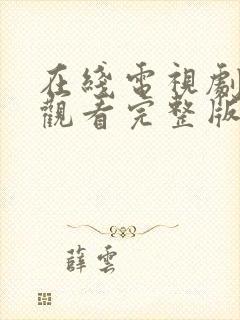 在綫電視劇
觀看完整版
薛雲